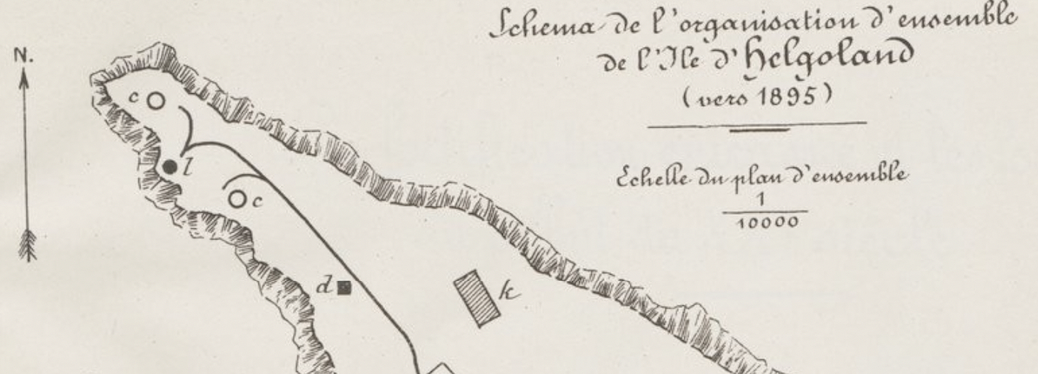 Schema de l'organisation d'ensemble
de l'Ile d'Helgoland
(vers 1895)
N.
Echelle du plan d'ensemble
1
10000
c
l
c
d
k